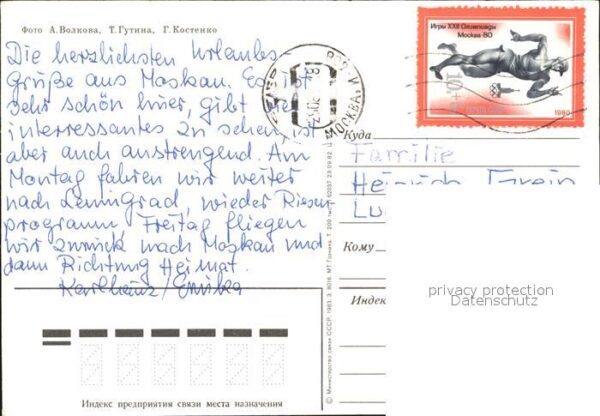 Фото А. Волкова, Т. Гутина, Г. Костенко
Die herzlichsten Urlaubs-
grüße aus Moskau. Es ist
sehr schön hier, gibt viel
interressantes zu sehen ist
aber auch anstrengend. Am
Montag fahren wir weiter
nach Leningrad, wieder Riesen-
programm, Freitag fliegen
wir zurück nach Moskau und
dann Richtung Heimat.
Karlheinz/
Индекс предприятия связи места назначения
© Министерство связи СССР, 1983. З. 8016. МТ Гознака. Т. 200
Игры XXII Олимпиады
Москва-80
1980
МОСКВА
Куда
Familie
Heinrich
Кому
Индекс
privacy protection
Datenschutz